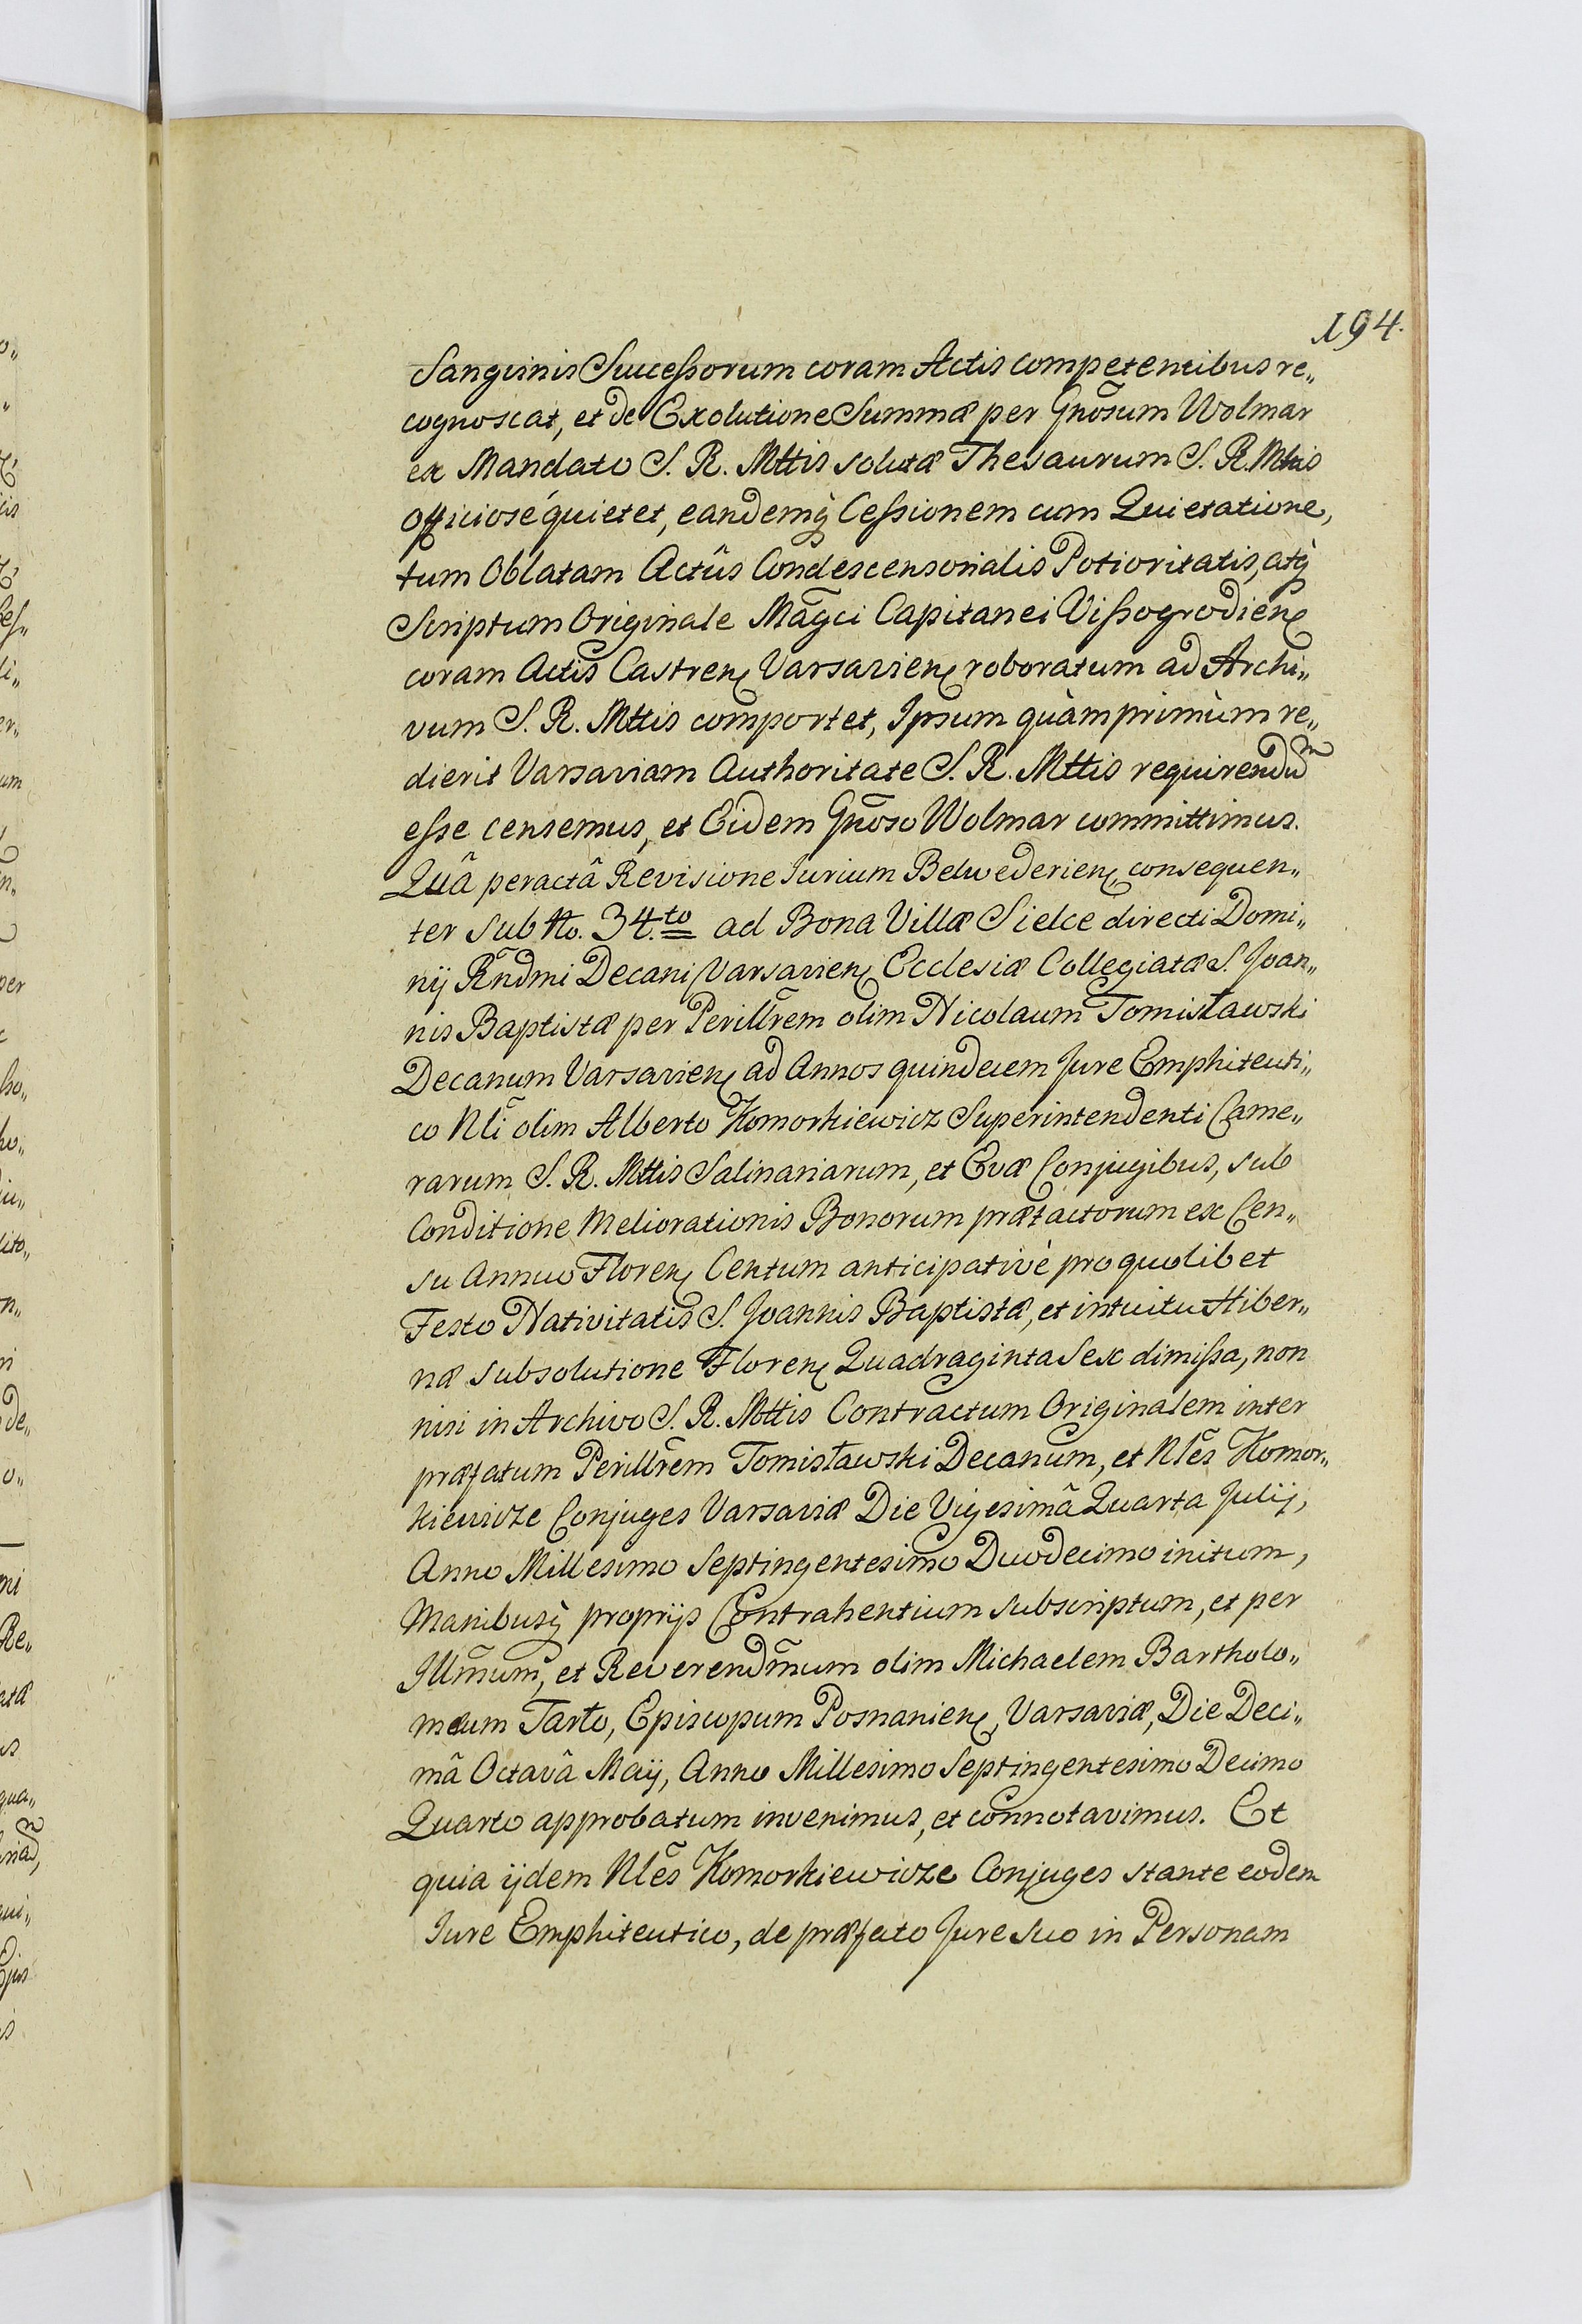 194.
Sanguinis Successorum coram Actis competentibus re„
cognoscat, et de Exolutione Summæ per Gnõsum Wolmar
ex Mandato S. R. Mttis solutæ Thesaurum S. R. Mttis
officiosè quietet, eandemq̀ Cessionem cum Quietatione,
tum Oblatam Actûs Condescensorialis Potioritatis, atq̀
Scriptum Originale Mãgci Capitanei Vissogrodien̨
coram Actis Castren̨ Varsavien̨ roboratum ad Archi„
vum S. R. Mttis comportet, Ipsum quàmprimùm re„
dierit Varsaviam Authoritate S. R. Mttis requirendũ
esse censemus, et Eidem Gnõso Wolmar committimus.
Quâ peractâ Revisione Iurium Belwederien̨, consequen„
ter sub No. 34.to ad Bona Villæ Sielce directi Domi„
nij Rñdmi Decani Varsavien̨ Ecclesiæ Collegiatæ S. Joan„
nis Baptistæ per Perillr̃em olim Nicolaum Tomisławski
Decanum Varsavien̨ ad Annos quindecem Jure Emphiteuti„
co Nlĩ olim Alberto Komorkiewicz Superintendenti Came„
rarum S. R. Mttis Salinariarum, et Evæ Conjugibus, sub
Conditione Meliorationis Bonorum præfactorum ex Cen„
su Annuo Floren̨ Centum anticipativè pro quolibet
Festo Nativitatis S. Joannis Baptistæ, et intuitu Hiber„
næ subsolutione Floren̨ Quadraginta Sex dimissa, non
nisi in Archivo S. R. Mttis Contractum Originalem inter
præfatum Perillr̃em Tomisławski Decanum, et Nlẽs Komor„
kiewicze Conjuges Varsaviæ Die Vigesimâ Quarta Julij,
Anno Millesimo Septingentesimo Duodecimo initum,
Manibusq̀ proprijs Contrahentium subscriptum, et per
Illm̃um, et Reverendm̃um olim Michaelem Bartholo„
mæum Tarło, Episcopum Posnanien̨, Varsaviæ, Die Deci„
mâ Octavâ Maij, Anno Millesimo Septingentesimo Decimo
Quarto approbatum invenimus, et connotavimus. Et
quia ijdem Nlẽs Komorkiewicze Conjuges stante eodem
Iure Emphiteutico, de præfato Jure suo in Personam